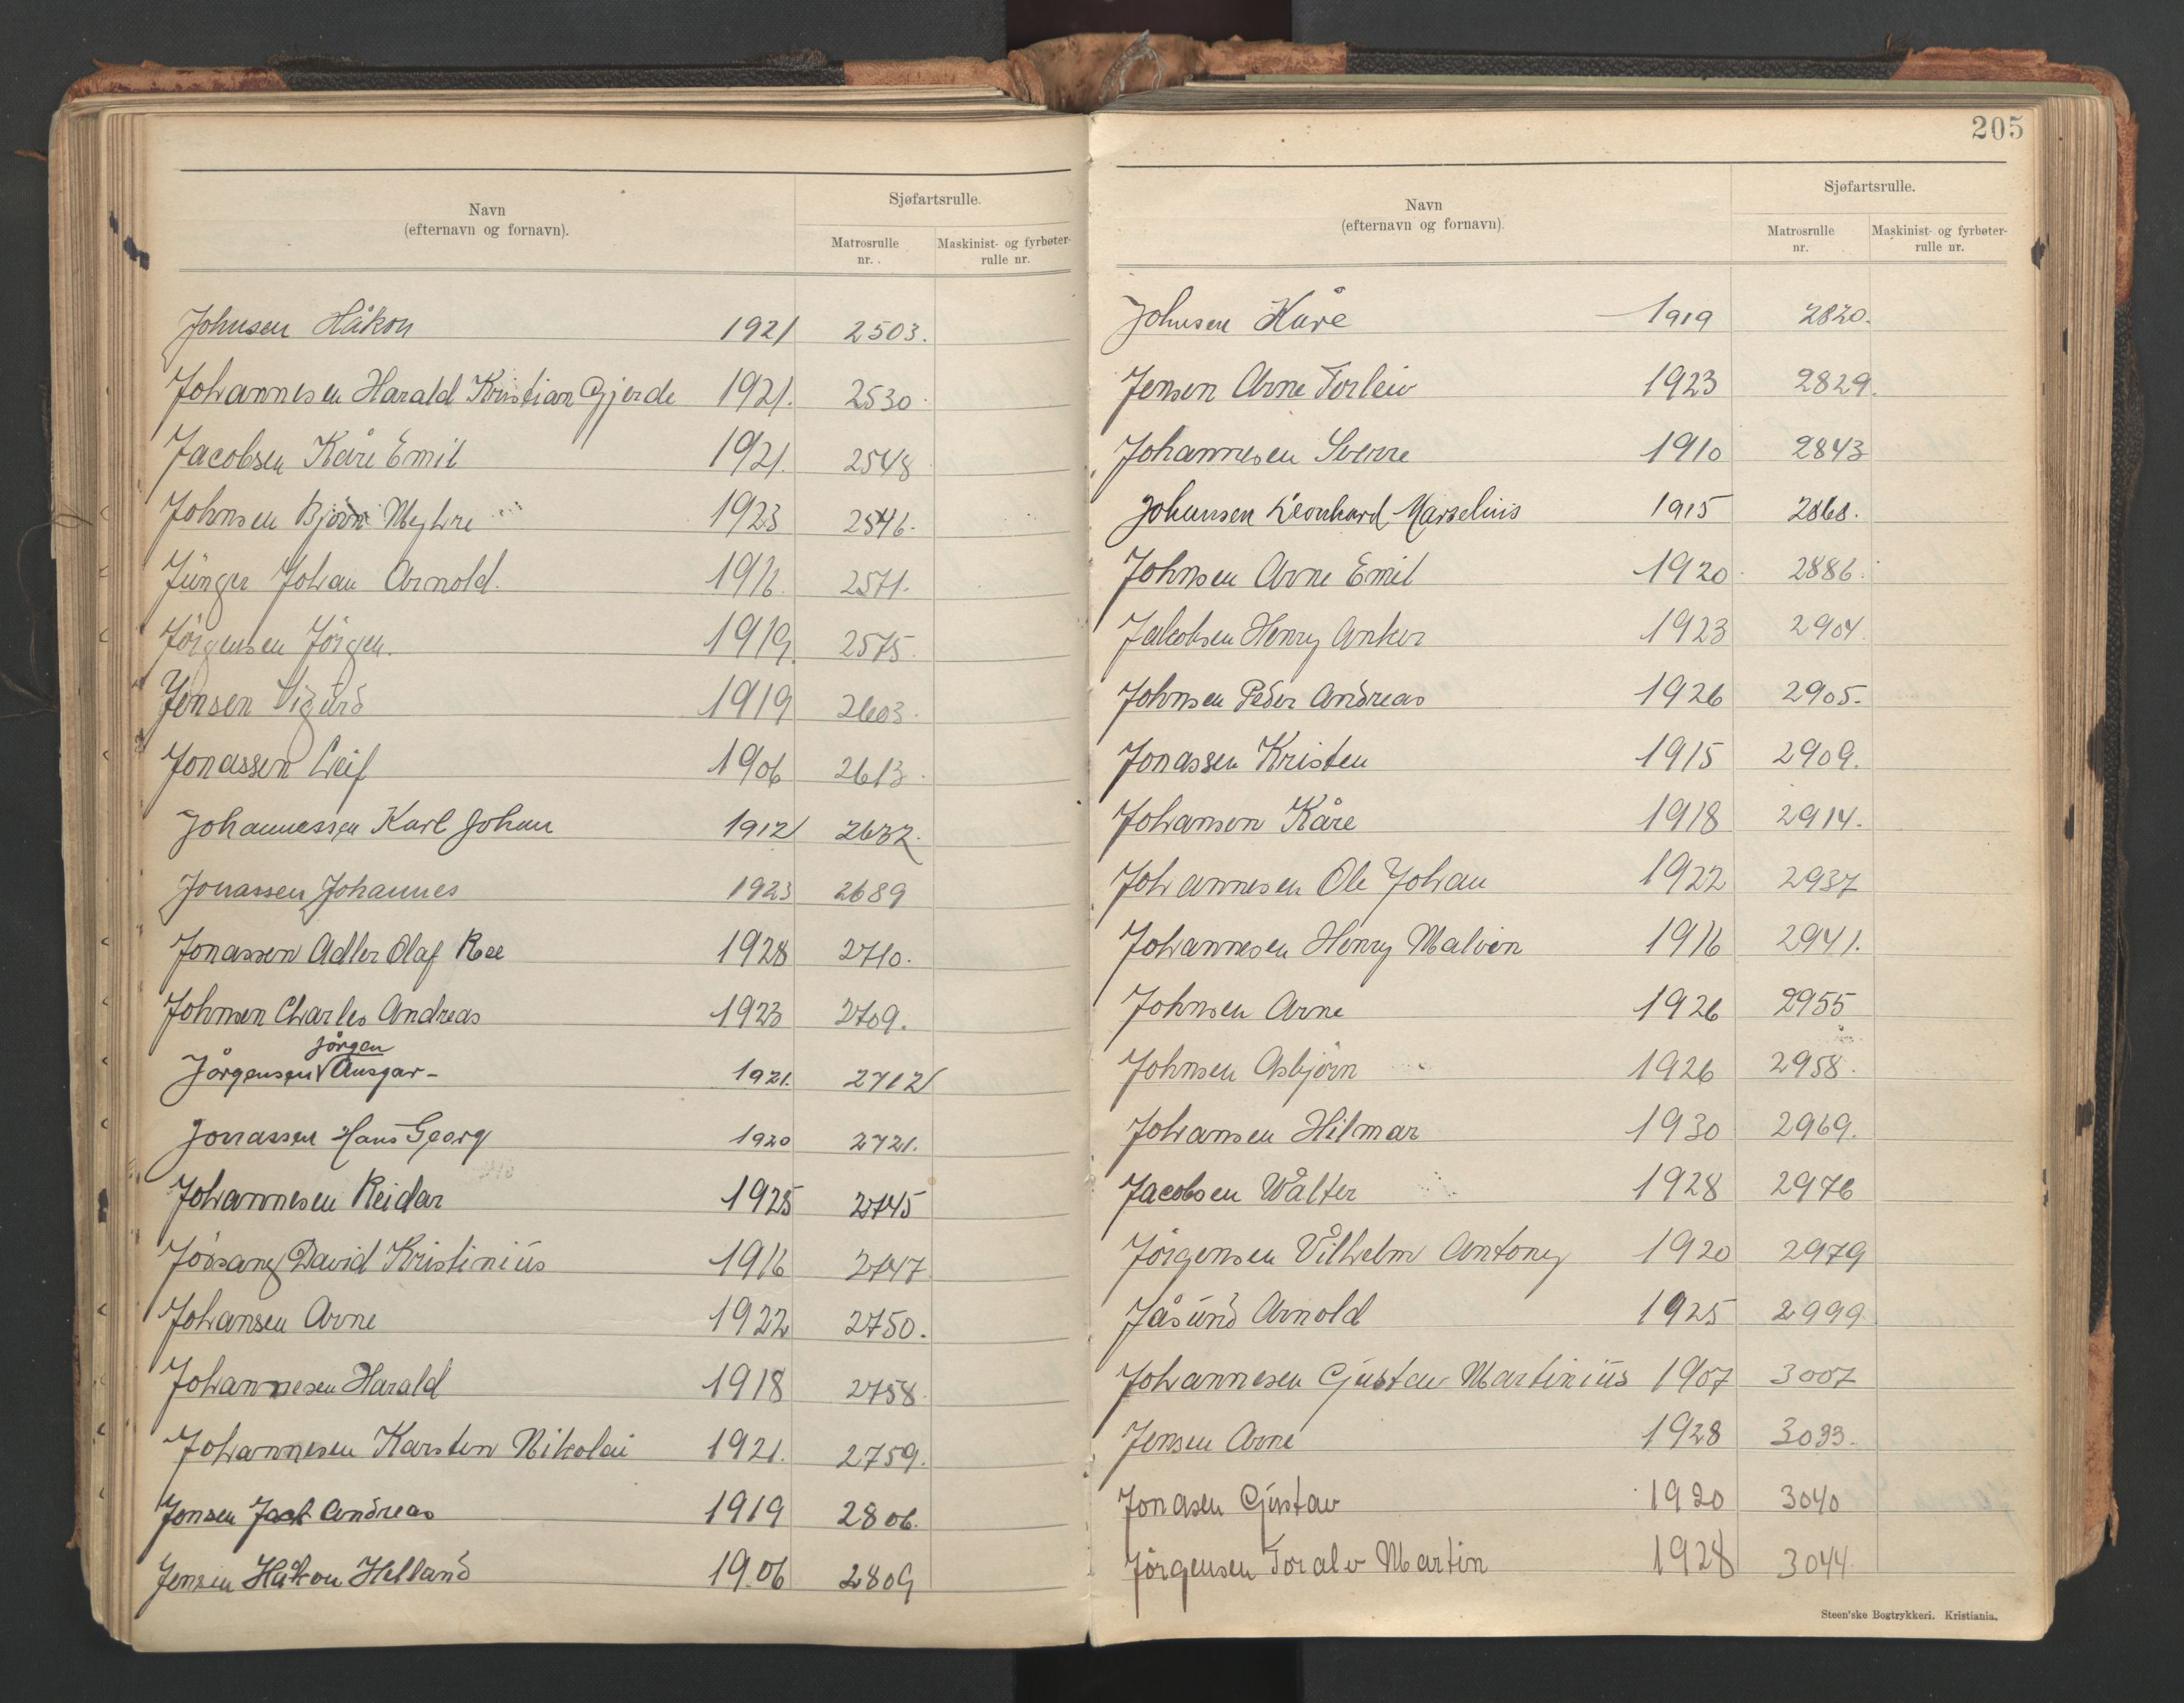 Navn
(efternavn og fornavn).
Sjøfartsrulle.
Matrosrulle
nr.
Maskinist- og fyrbøter-
rulle nr.
Johnsen Håkon 1921 2503.
Johannesen Harald Kristian Gjerde 1921. 2530
Jacobsen Kåre Emil 1921. 2548
Johnsen Bjørn Myhre 1923 2546.
Jünger Johan Arnold. 1916. 2571.
Jörgensen Jörgen. 1919. 2575.
Jensen Sigurd 1919 2603.
Jonassen Leif 1906 2613.
Johannessen Karl Johan 1912 2632.
Jonassen Johannes 1923 2689
Jonassen Adler Olaf Roe 1928 2710.
Johnsen Charles Andreas 1923 2709.
Jörgen
Jörgensen Ansgar- 1921. 2712
Jonassen Hans Georg 1920 2721.
Johannesen Reidar 1925 2745
Jössang David Kristinius 1916 2747
Johansen Arne 1922 2750.
Johannesen Harald 1918 2758.
Johannesen Karsten Nikolai 1921. 2759.
Jensen Jack Andreas 1919 2806.
Jensen Håkon Helland 1906 2809
205
Navn
(efternavn og fornavn).
Sjøfartsrulle.
Matrosrulle
nr.
Maskinist- og fyrbøter-
rulle nr.
Johnsen Kåre 1919 2820.
Jensen Arne Torleiv 1923 2829.
Johannesen Sverre 1910 2843
Johansen Leonhard Marselius 1915 2868.
Johnsen Arne Emil 1920. 2886.
Jakobsen Henry Anker 1923 2904.
Johnsen Peder Andreas 1926 2905.
Jonassen Kristen 1915 2909.
Johansen Kåre 1918 2914.
Johannesen Ole Johan 1922 2937
Johannesen Henry Malvin 1916 2941.
Johnsen Arne 1926 2955
Johnsen Asbjörn 1926 2958.
Johansen Hilmar 1930 2969.
Jacobsen Walter 1928 2976
Jörgensen Vilhelm Antony 1920 2979
Jåsund Arnold 1925 2999.
Johannesen Gustav Martinius 1907 3007
Jensen Arne 1928 3033.
Jonasen Gustav 1920 3040
Jörgensen Toralv Martin 1928 3044.
Steen'ske Bogtrykkeri. Kristiania.